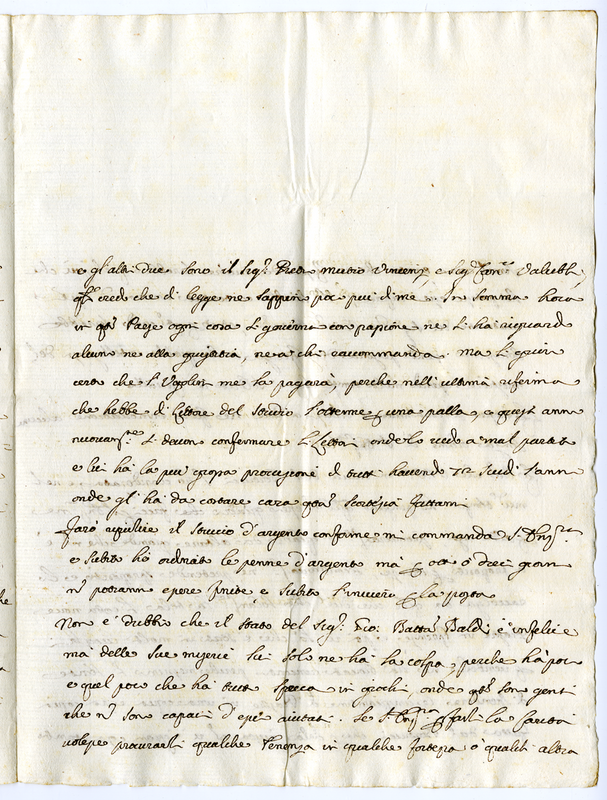 e gl'altri due sono il Sig.r Pietro mutio Vincenz e Sig.r
credo che di legge ne sappin poco piu di me. In somma hora
in q.sto Paese ogni cosa si governa con passione ne si ha riguardo
alcuno ne alla giustitia, ne a chi raccommanda. ma si
certa che l'Ugolin me la pagarà, perche nell'ultima riforma
che hebbe di lettore del studio l'ottenne p una palla, e quest'anno
si devon confermare onde lo vedo a mal partito
e lui ha la piu grossa provisione di tutti havendo 72 scudi l'anno
onde gl'ha da costare cara q.sta scortesia fattami
Farò ripulire il stuccio d'argento conforme mi commanda V.S. Ill.ma
e subito hò ordinato le penne d'argento mà p otto ò dieci giorni
n̄ potranno essere finite e subito l'inviero p la posta
Non e dubbio che il stato del Sig.r Gio: Batta Baldi è infelice
ma delle sue miserie lui solo ne hà la colpa, perche hà poco
e quel poco che ha tutto specca in giochi, onde q.sti son genti
che n̄ sono capaci d'esser aiutati. Se V.S. Ill.ma p farli la carità
volesse procurarli qualche Tenenza in qualche fortezza ò qualch altra